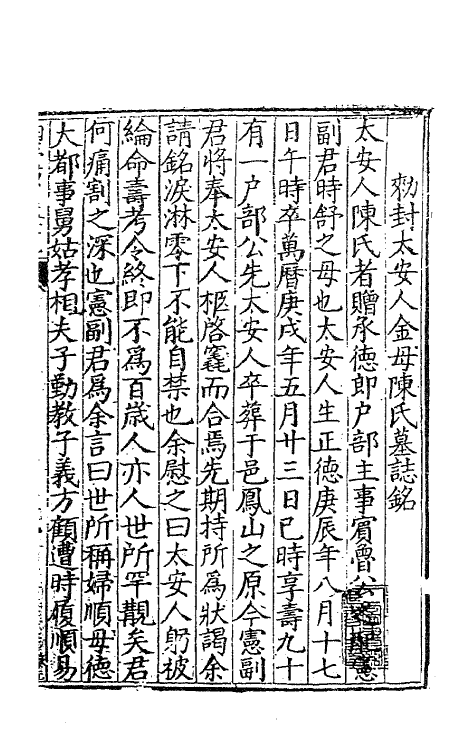 勑封太安人金母陳氏墓誌銘
太安人陳氏者贈承德郎户部主事賓魯公
副君時舒之母也太安人生正德庚辰年八月十七
日午時卒萬曆庚戌年五月廿三日巳時享壽九十
有一户部公先太安人卒葬于邑鳳山之原今憲副
君將奉太安人柩啓窀而合焉先期持所爲狀謁余
請銘淚淋零下不能自禁也余慰之曰太安人躬被
綸命壽考令終即不爲百歲人亦人世所罕覯矣君
何痛割之深也憲副君爲余言曰世所稱婦順母德
大都事舅姑孝相夫子勤教子義方顧遭時履順易